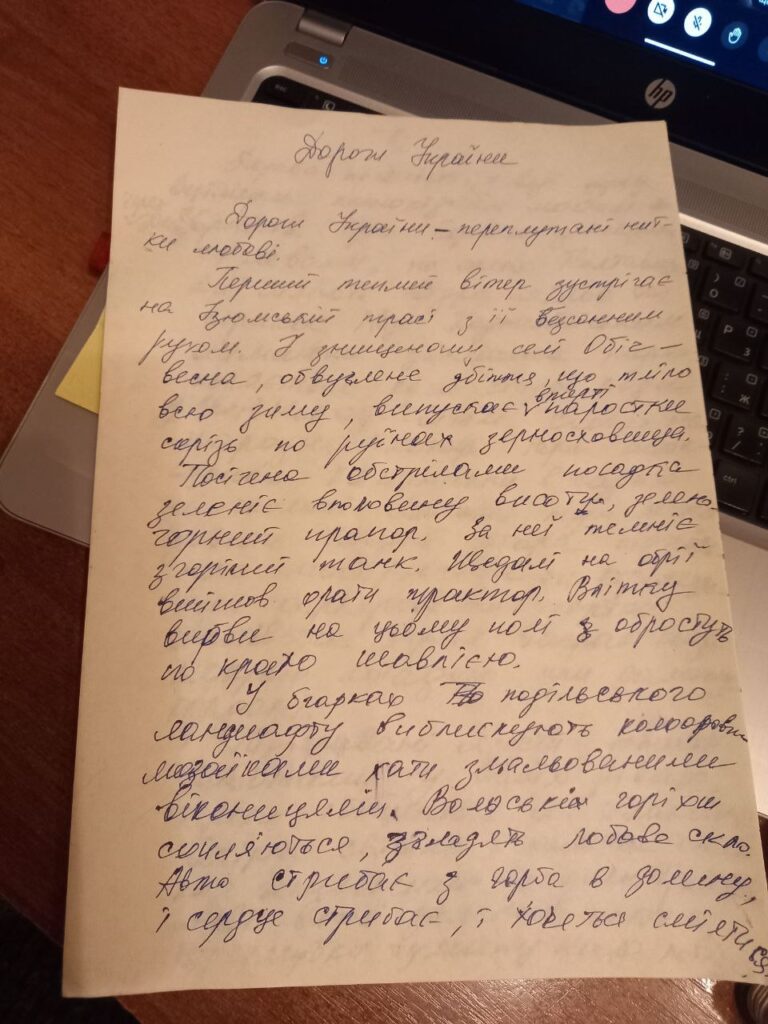 Дороги України
Дороги України – переплутані нит-
ки любові.
Перший теплий вітер зустрігає
на Ізюмській трасі з її безсонним
рухом. У знищеному селі
весна, обвуглене збіжжя, що тліло
вперті
всю зиму, випускає паростки
скрізь по руїнах зерносховища.
Посічена обстрілами посадка
зеленіє вполовину висоти, зелено-
чорний прапор. За неї темніє
згорілий танк. Неведалі на обрії
вийшов орати трактор. Влітку
вирви на цьому полі обростуть
по краю шавлією.
У бгарках подільського
ландшафту виблискують кольоровими
мозаїками хати змальованими
віконицями. Волоські горіхи
схиляються, гладять лобове скло.
Авто стрибає з горба в долину,
і серце стрибає, і хочеться сміятися.
hp
esc
ctrl